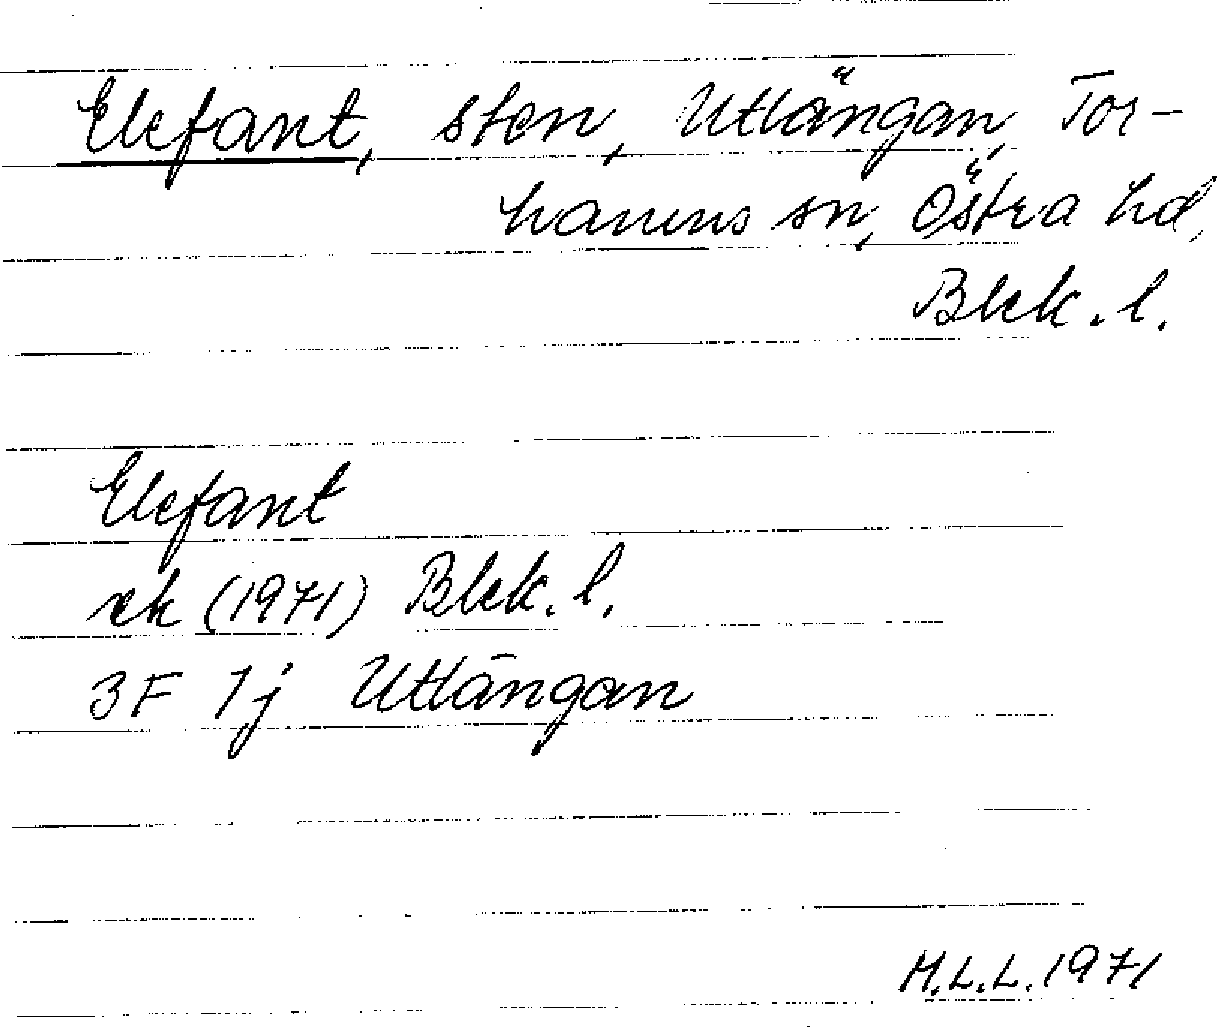 Elefant, sten, Utlängan, Tor-
hamns sn, Östra hd,
Blek. l.
Elefant
ek (1971) Blek. l.
3F 1j Utlängan
M.L.L. 1971